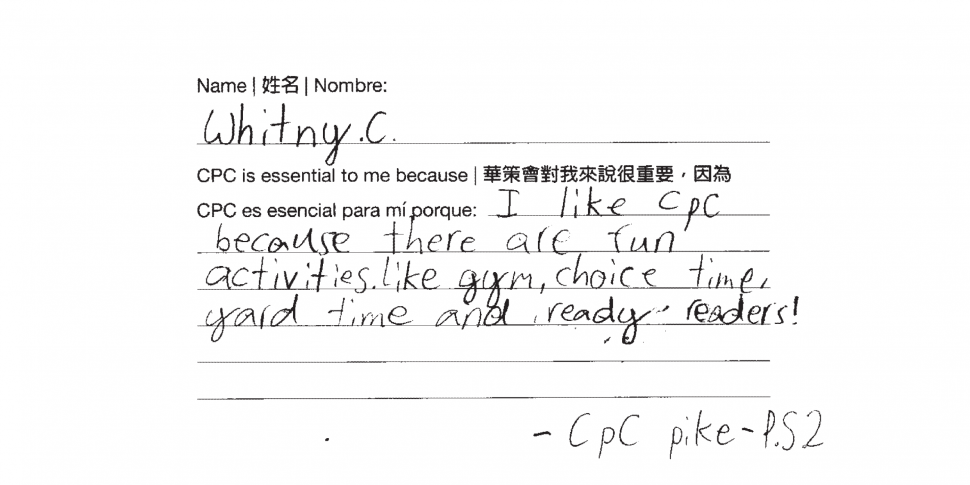 Name | 姓名 | Nombre:
Whitny.C.
CPC is essential to me because | 華策會對我來說很重要，因為
CPC es esencial para mí porque: I like CpC
because there are fun
activities.like gym, choice time,
yard time and ready readers!
- CpC pike-P.S2